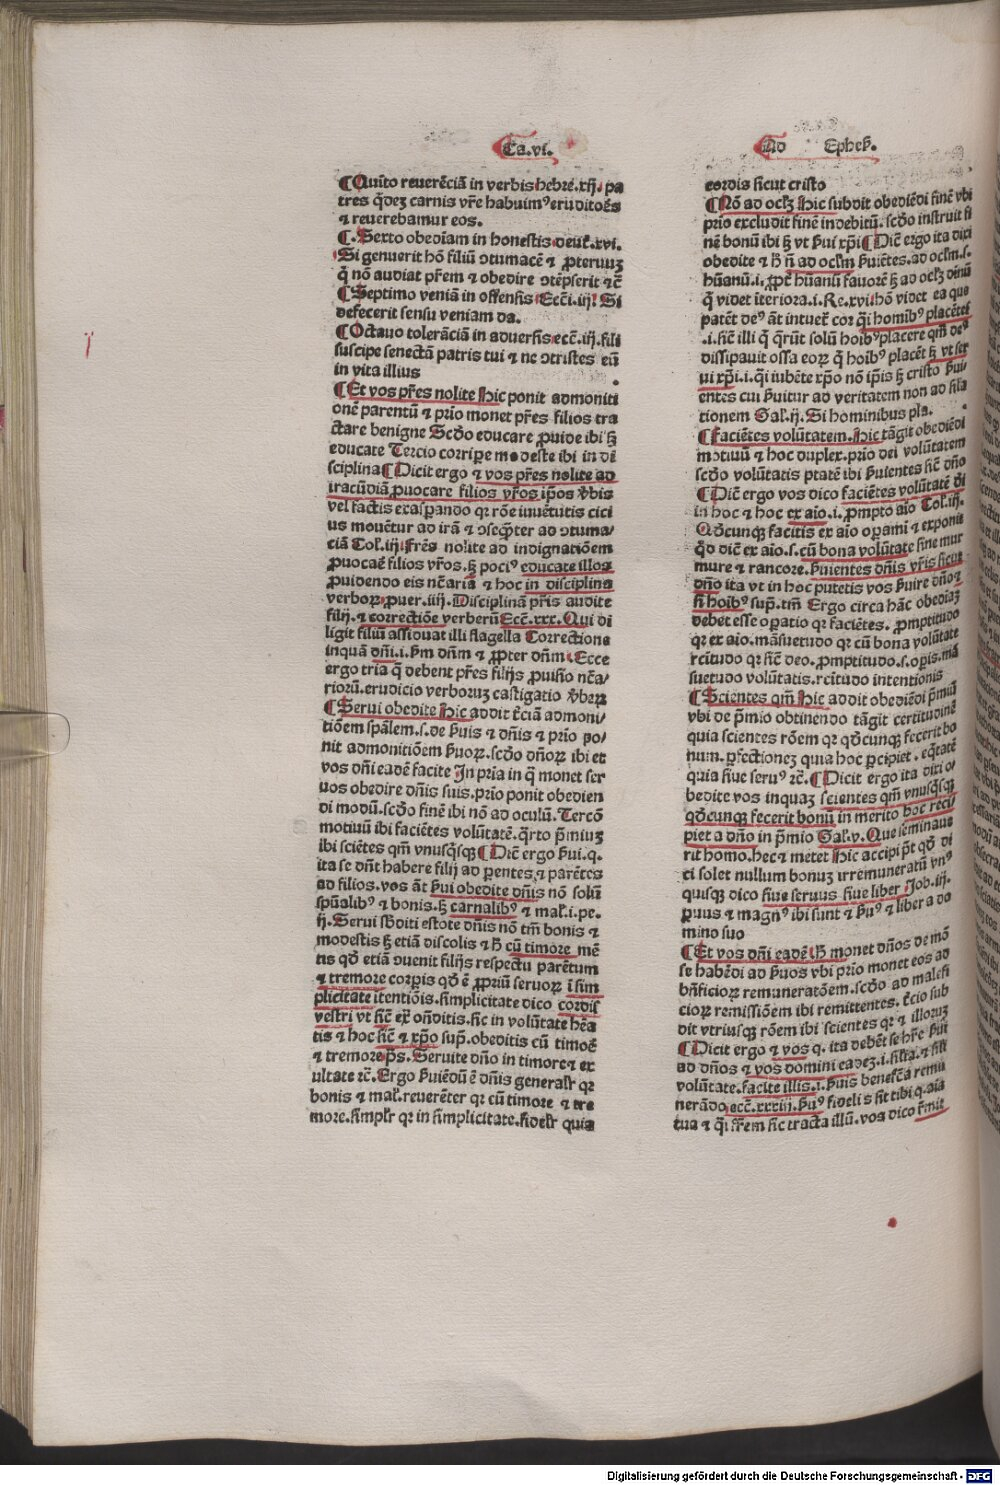 Ca.vi.
Ad Epheß.
¶Quīto reuerēciā in verbis hebre.xij. pa
tres q̄dez carnis vr̄e habuimꝰ eruditoēs
⁊ reuerebamur eos.
¶.Sexto obediam in honestis deut̄.xvi.
Si genuerit hō filiū ↄtumacē ⁊ ꝓteruuz
q̄ nō audiat pr̄em ⁊ obedire ↄtēpserit ⁊c̄
¶Septimo veniā in offensis Ecc̄i.iij. Si
defecerit sensu veniam da.
¶Octauo tolerāciā in aduersis ecc̄.iij. fili
suscipe senectā patris tui ⁊ ne ↄtristes eū
in vita illius
¶Et vos pr̄es nolite Hic ponit admoniti
onē parentū ⁊ prīo monet pr̄es filios tra
ctare benigne Scd̄o educare ꝓuide ibi ꝫ
educate Tercio corripe modeste ibi in di
sciplina ¶Dicit ergo ⁊ vos pr̄es nolite ad
iracūdiā ꝓuocare filios vr̄os ip̄os v̄bis
vel factis exasꝑando qꝛ rōe iuuētutis cici
us mouētur ad irā ⁊ ↄseq̄ter ad ↄtuma-
ciā Col.iij. fr̄es nolite ad indignatiōem
ꝓuocar̄e filios vr̄os. ꝫ pociꝰ educate illos
ꝓuidendo eis nēc̄aria ⁊ hoc in disciplina
verboꝝ. ꝓuer.iiij. Disciplinā pr̄is audite
filij. ⁊ correctiōe verberū Ecc̄.xxx. Qui di
ligit filiū assiduat illi flagella Correctione
inquā dn̄i.i. ẜm dn̄m ⁊ ꝓpter dn̄m. Ecce
ergo tria q̄ debent pr̄es filijs ꝓuisio nēc̄a/
rioꝝ. erudicio verboruz castigatio v̄berꝝ
¶Serui obedite Hic addit t̄ciā admoni/
tiōem spālem.s. de ẜuis ⁊ dn̄is ⁊ prīo po/
nit admonitiōem ẜuoꝝ. scd̄o dn̄oꝝ ibi et
vos dn̄i eadē facite In pria in q̄ monet ser
uos obedire dn̄is suis. prīo ponit obedien
di modū. scd̄o finē ibi nō ad oculū. Tercō
motiuū ibi faciētes volūtatē. q̄rto p̄miuz
ibi sciētes qm̄ vnusq̄sqꝫ ¶Dic̄ ergo ẜui.q.
ita se dn̄t habere filij ad ꝑentes. ⁊ parētes
ad filios. vos āt ẜui obedite dn̄is nō solū
spūalibꝰ ⁊ bonis. ꝫ carnalibꝰ ⁊ mal̄.i.pe.
ij. Serui sb̄diti estote dn̄is nō tm̄ bonis ⁊
modestis ꝫ etiā discolis ⁊ h̄ cū timore mē
tis qd̄ etiā ↄuenit filijs respectu parētum
⁊ tremore corꝑis qd̄ ē ꝓpriū seruoꝝ ī sim
plicitate itentiōis. simplicitate dico cordis
vestri vt sic̄ ex̄ on̄ditis. sic̄ in volūtate hēa
tis ⁊ hoc sic̄ ⁊ xp̄o sup̄. obeditis cū timor̄e
⁊ tremore p̄s. Seruite dn̄o in timore ⁊ ex
ultate ⁊c̄. Ergo ẜuiēdū ē dn̄is general̄r qꝛ
bonis ⁊ mal̄. reuerēter qꝛ cū timore ⁊ tre
more. simpl̄r qꝛ in simplicitate. fidel̄r quia
cordis sicut cristo
¶Nō ad ocl̄ꝫ Hic subdit obediēdi finē vbi
prio excludit finē indebitū. scd̄o instruit fi
nē bonū ibi ꝫ vt ẜui xp̄i ¶Dic̄ ergo ita dixi
obedite ⁊ h̄ n̄ ad ocl̄m ẜuiētes. ad ocl̄m.s.
hūanū.i. ꝓpt̄ hūanū fauorē ꝫ ad ocl̄ꝫ diuinū
q̄ videt iteriora.i. Re.xvi. hō videt ea que
patēt deꝰ āt intuet̄ cor q̄i homibꝰ placētes
.i. sic̄ illi q̄ q̄rūt solū hoibꝰ placere qm̄ deꝰ
dissipauit ossa eoꝝ q̄ hoibꝰ placēt ꝫ vt ser
ui xp̄i.i. q̄i iubēte xp̄o nō ip̄is ꝫ cristo ẜui
entes cui ẜuitur ad veritatem non ad sila
tionem Gal.ij. Si hominibus pla.
¶Faciētes volūtatem. Hic tāgit obediēdi
motiuū ⁊ hoc duplex. prio dei volūtatem
scd̄o volūtatis ꝓtatē ibi ẜuientes sic̄ dn̄o
¶Dic̄ ergo vos dico faciētes volūtatē di
in hoc ⁊ hoc ex aio.i. ꝓmpto aio Col.iij.
Qd̄cunqꝫ facitis ex aio oꝑami ⁊ exponit
qd̄ dic̄ ex aio.s. cū bona volūtate sine mur
mure ⁊ rancore. ẜuientes dn̄is vr̄is sicut
dn̄o ita vt in hoc putetis vos ẜuire dn̄o ⁊
n̄ hoibꝰ sup̄. tm̄ Ergo circa hāc obediaꝫ
debet esse oꝑatio qꝛ faciētes. ꝓmptitudo
qꝛ ex aio. māsuetudo qꝛ cū bona volūtate
rc̄itudo qꝛ sic̄ deo. ꝓmptitudo.s. oꝑis. mā
suetudo volūtatis. rcitudo intentionis
¶Scientes qm̄ Hic addit obediēdi p̄miū
vbi de p̄mio obtinendo tāgit certitudinē
quia scientes rōem qꝛ qd̄cunqꝫ fecerit bo
num. ꝑfectionez quia hoc ꝑcipiet. eq̄tatē
quia siue seruꝰ ⁊c̄. ¶Dicit ergo ita dixi o/
bedite vos inquaꝫ scientes qm̄ vnusq̄sqꝫ
qd̄cunqꝫ fecerit bonū in merito hoc reci/
piet a dn̄o in p̄mio Gal.v. Que seminaue
rit homo. hec ⁊ metet Hic accipi p̄t qd̄ di
ci solet nullum bonuz irremuneratū vnꝰ
quisqꝫ dico siue seruus siue liber Job.iij.
ꝑuus ⁊ magnꝰ ibi sunt ⁊ ẜuꝰ ⁊ liber a do
mino suo
¶Et vos dn̄i eadē h̄ monet dn̄os de mō
se habēdi ad ẜuos vbi prio monet eos ad
bn̄ficioꝝ remuneratōem. scd̄o ad malefi
cioꝝ remissiōem ibi remittentes. t̄cio sub
dit vtriusqꝫ rōem ibi scientes qꝛ ⁊ illoruz
¶Dicit ergo ⁊ vos q. ita debēt se hr̄e ẜui
ad dn̄os ⁊ vos domini eadez.i. silia. ⁊ sili
volūtate. facite illis.i. ẜuis benefc̄a remu
nerādo ecc̄.xxxiij. ẜuꝰ fidelis sit tibi q. aia
tua ⁊ q̄i fr̄em sic̄ tracta illū. vos dico r̄mit
Digitalisierung gefördert durch die Deutsche Forschungsgemeinschaft - DFG